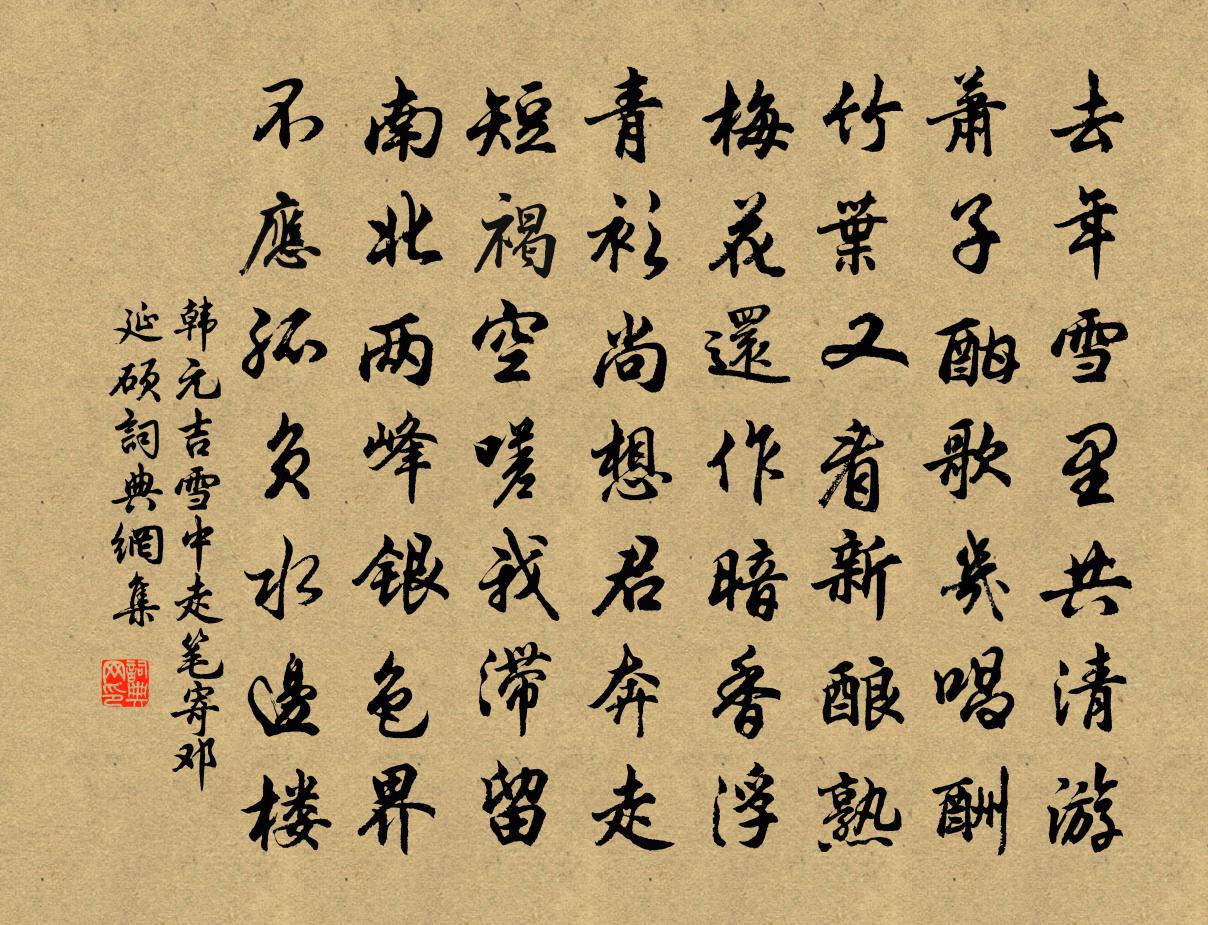 去年雪里共清游
萧子酣歌几唱酬
竹葉又看新酿熟
梅花還作暗香浮
青衫尚想君奔走
短褐空嗟我滞留
南北两峰銀色界
不應孤负水邊楼
韩元吉雪中走笔寄邓
延硕詞典網集
詞典
网印